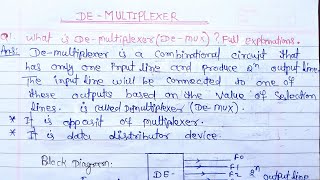 DE-MULTIPLEXER
Q! What is De-multiplexer (De-mux)? Full explanations.
Ans: De-multiplexer is a combinational circuit that
has only one Input line and produce 2ⁿ output line.
The input line will be connected to one of
these outputs based on the value of selection
lines. is called Demultiplexer (De-mux).
* It is opposit of multiplexer.
* It is data distributor device.
Block Diagram.
F0
F1
DE-
2ⁿ output line